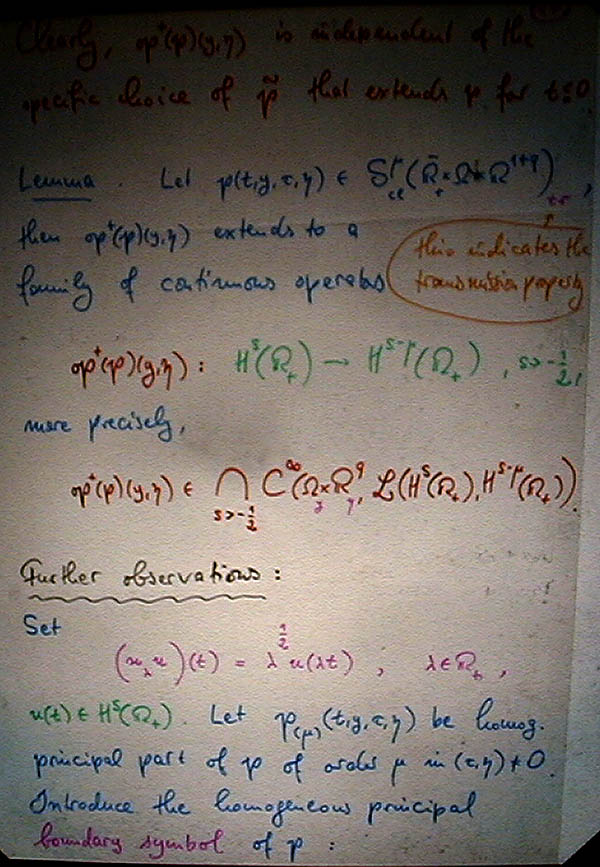 Clearly, op⁺(p)(y,η) is independent of the
specific choice of p̃ that extends p for t≤0.
Lemma. Let p(t,y,τ,η) ∈ S^μ_cl(R̄₊×Ω×R^{1+q})_tr,
then op⁺(p)(y,η) extends to a
family of continuous operators
this indicates the
transmission property
op⁺(p)(y,η): H^s(R₊) → H^{s-μ}(R₊), s>-1/2,
more precisely,
op⁺(p)(y,η) ∈ ⋂_{s>-1/2} C^∞(Ω_y×R^q_η, L(H^s(R₊), H^{s-μ}(R₊))).
Further observations:
Set
(ϰ_λ u)(t) = λ^{1/2} u(λt), λ∈R₊,
u(t) ∈ H^s(R₊). Let p_(μ)(t,y,τ,η) be homog.
principal part of p of order μ in (τ,η)≠0.
Introduce the homogeneous principal
boundary symbol of p: